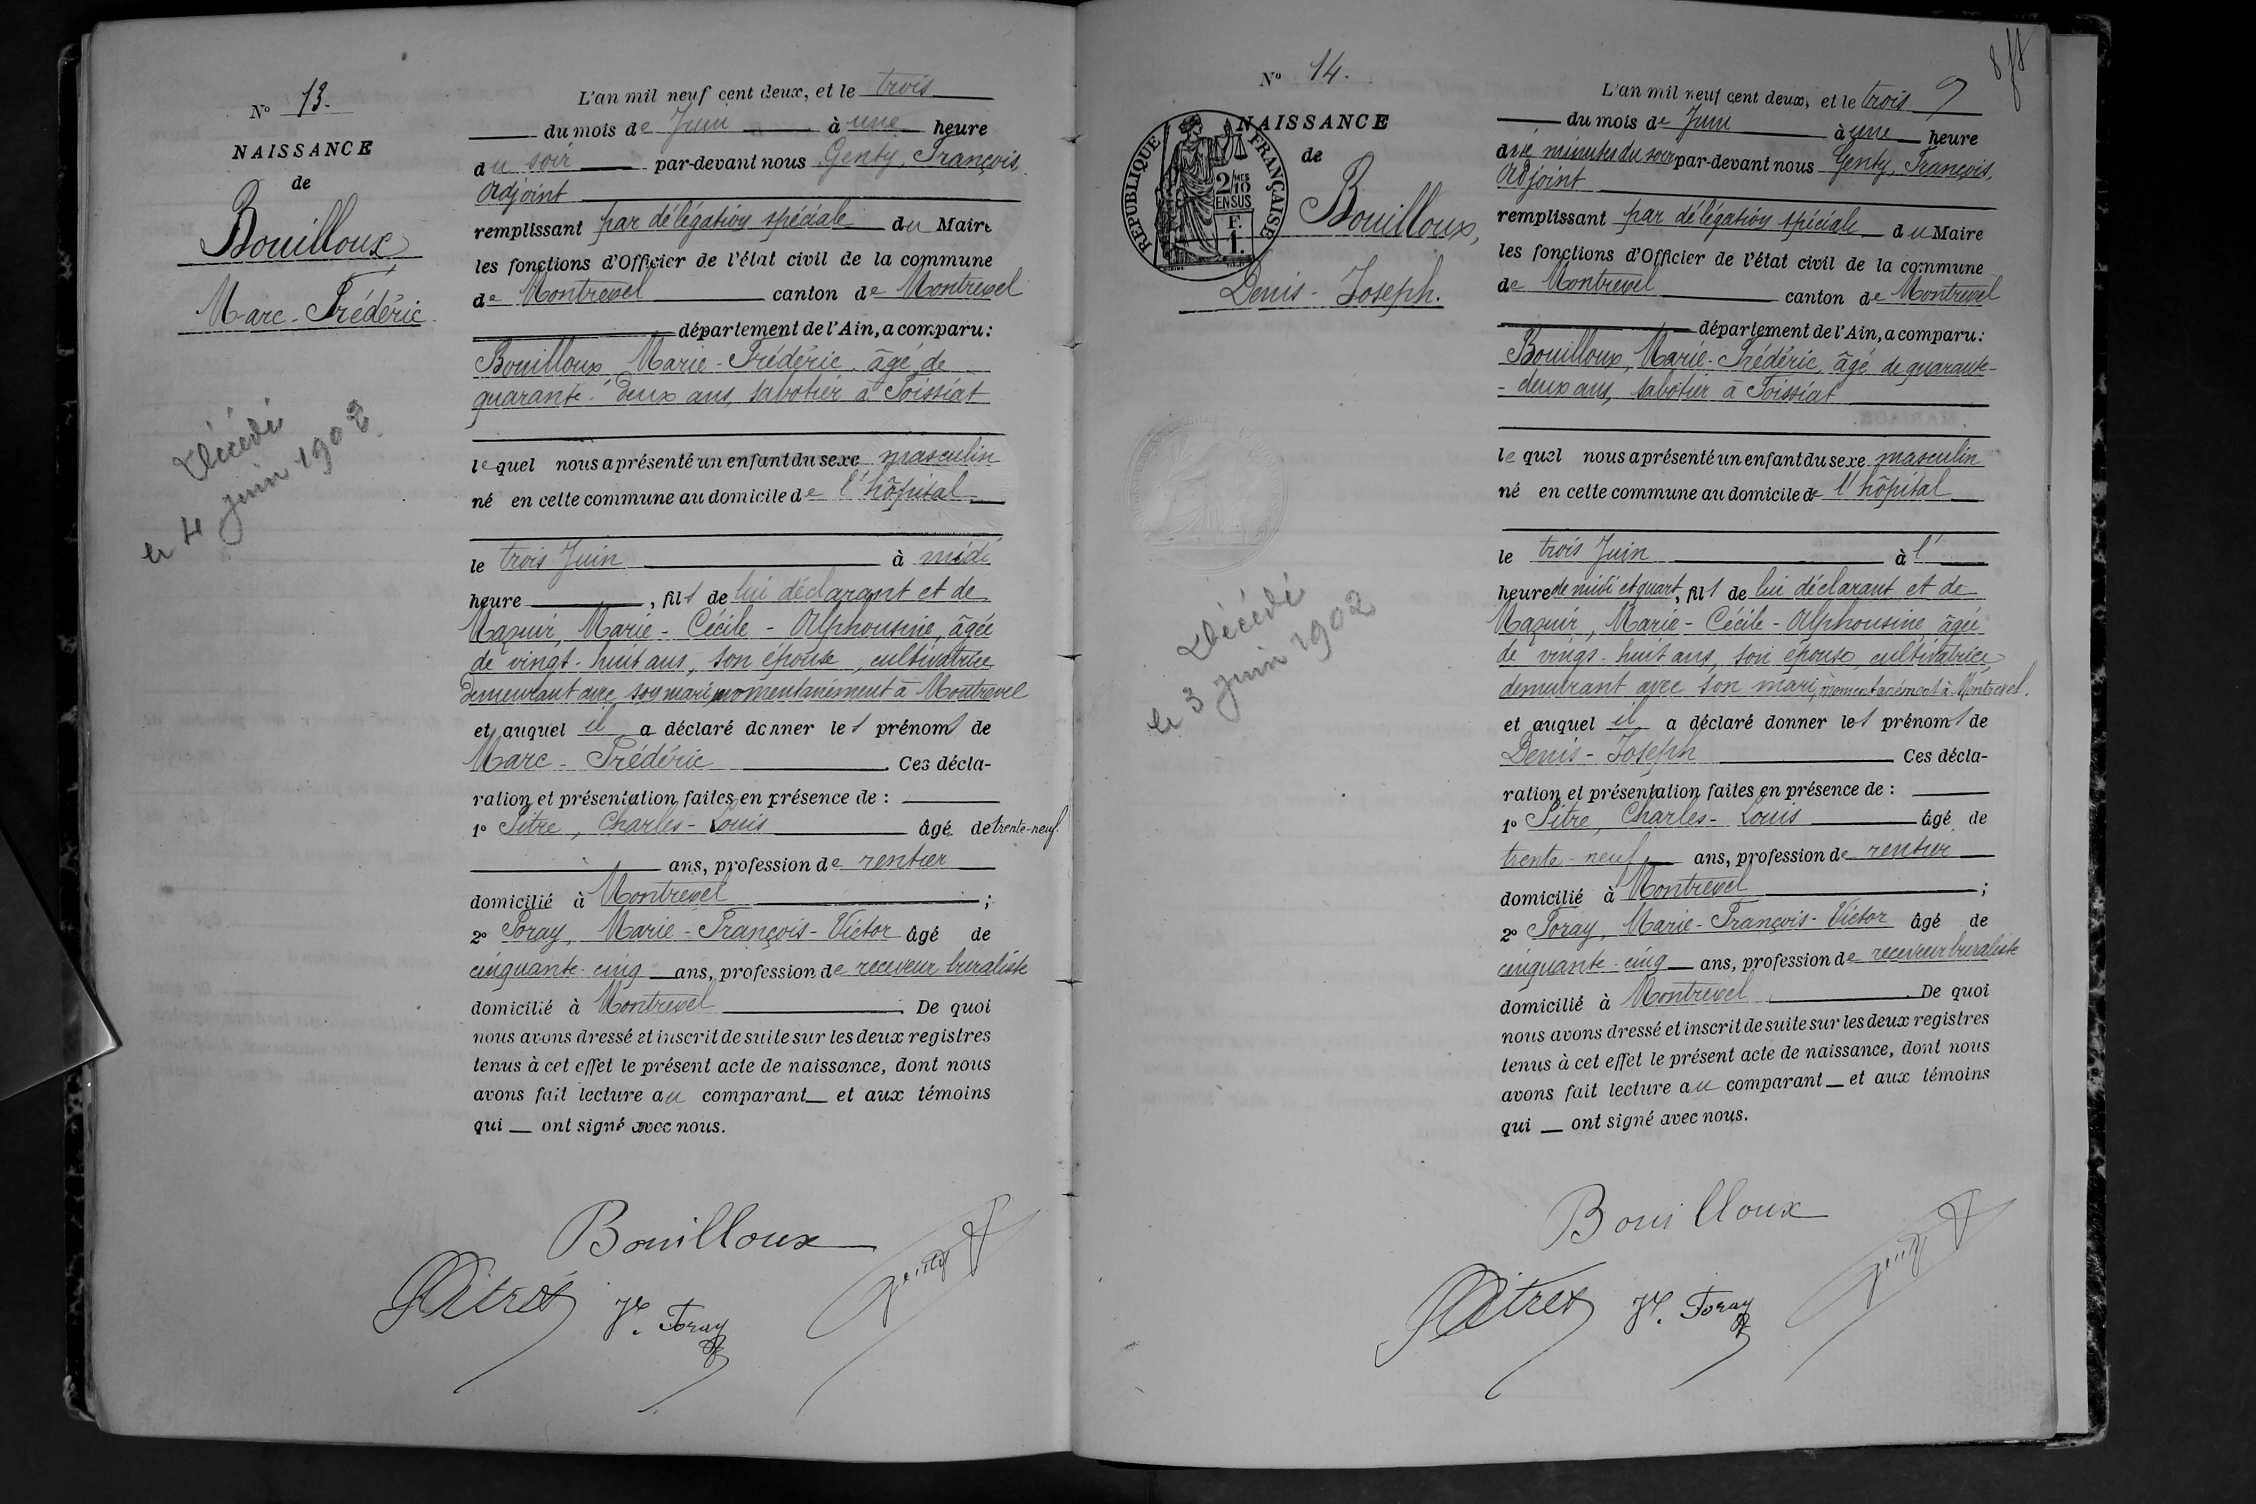 N° 13.
NAISSANCE
de
Bouilloux
Marc-Frédéric
Décédé
le 4 juin 1902.
L'an mil neuf cent deux, et le trois
du mois de Juin à une heure
du soir par-devant nous Genty, François,
Adjoint
remplissant par délégation spéciale du Maire
les fonctions d'Officier de l'état civil de la commune
de Montrevel canton de Montrevel
département de l'Ain, a comparu:
Bouilloux Marie-Frédéric, âgé de
quarante-deux ans, sabotier à Foissiat
lequel nous a présenté un enfant du sexe masculin
né en cette commune au domicile de l'hôpital
le trois Juin à midi
heure, fils de lui déclarant et de
Mazuir, Marie-Cécile-Alphonsine, âgée
de vingt-huit ans, son épouse, cultivatrice
demeurant avec son mari momentanément à Montrevel
et auquel il a déclaré donner les prénoms de
Marc-Frédéric. Ces décla-
ration et présentation faites en présence de:
1° Pitre, Charles-Louis âgé de trente-neuf
ans, profession de rentier
domicilié à Montrevel;
2° Foray, Marie-François-Victor âgé de
cinquante-cinq ans, profession de receveur buraliste
domicilié à Montrevel. De quoi
nous avons dressé et inscrit de suite sur les deux registres
tenus à cet effet le présent acte de naissance, dont nous
avons fait lecture au comparant et aux témoins
qui ont signé avec nous.
Bouilloux
Pitre V. Foray Genty
N° 14.
NAISSANCE
de
Bouilloux,
Denis-Joseph.
RÉPUBLIQUE FRANÇAISE
2/10 MES
EN SUS
F.
1.
Décédé
le 3 juin 1902
8 f8
L'an mil neuf cent deux, et le trois
du mois de Juin à une heure
dix minutes du soir par-devant nous Genty, François,
Adjoint
remplissant par délégation spéciale du Maire
les fonctions d'Officier de l'état civil de la commune
de Montrevel canton de Montrevel
département de l'Ain, a comparu:
Bouilloux, Marie-Frédéric, âgé de quarante-
-deux ans, sabotier à Foissiat
lequel nous a présenté un enfant du sexe masculin
né en cette commune au domicile de l'hôpital
le trois Juin à l'
heure de midi et quart, fils de lui déclarant et de
Mazuir, Marie-Cécile-Alphonsine âgée
de vingt-huit ans, son épouse, cultivatrice,
demeurant avec son mari, momentanément à Montrevel.
et auquel il a déclaré donner les prénoms de
Denis-Joseph Ces décla-
ration et présentation faites en présence de:
1° Pitre, Charles-Louis âgé de
trente-neuf ans, profession de rentier
domicilié à Montrevel;
2° Foray, Marie-François-Victor âgé de
cinquante-cinq ans, profession de receveur buraliste
domicilié à Montrevel. De quoi
nous avons dressé et inscrit de suite sur les deux registres
tenus à cet effet le présent acte de naissance, dont nous
avons fait lecture au comparant et aux témoins
qui ont signé avec nous.
Bouilloux
Pitre V. Foray Genty